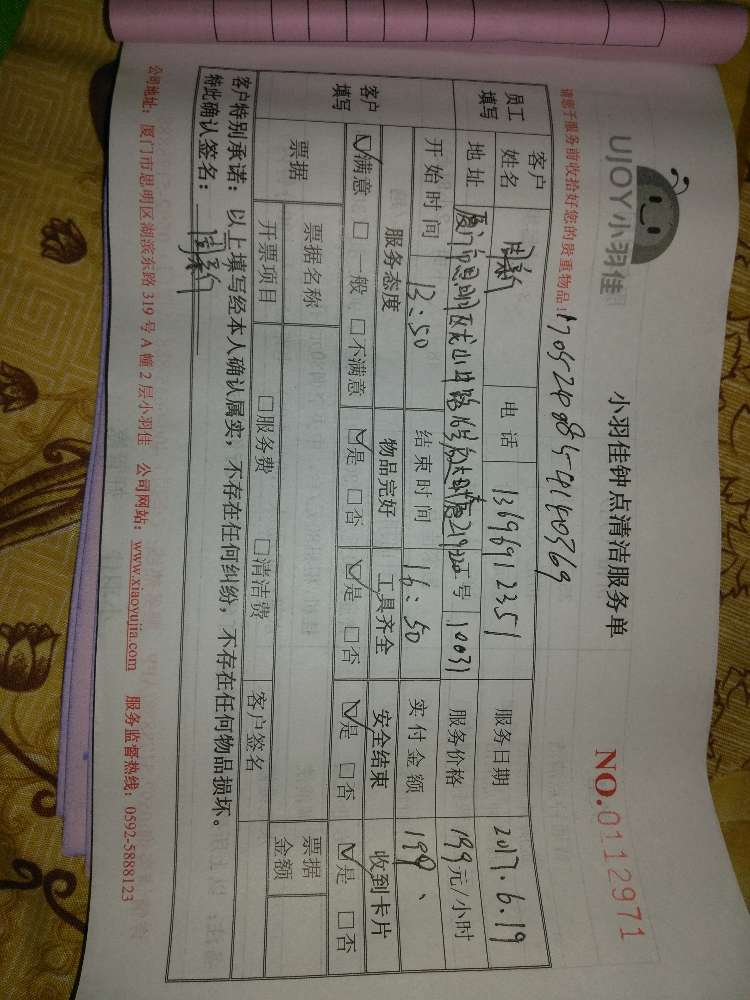 UJOY小羽佳
小羽佳钟点清洁服务单
NO.0112971
请您于服务前收拾好您的贵重物品!
员工填写
客户姓名
电话
服务日期 2017.6.19
地址 厦门市思明区
工号 10031
服务价格 199元/小时
开始时间 13:50
结束时间 16:50
实付金额 199、
客户填写
服务态度
物品完好
工具齐全
安全结束
收到卡片
☑满意 □一般 □不满意
☑是 □否
☑是 □否
☑是 □否
☑是 □否
票据
票据名称
票据金额
开票项目
□服务费 □清洁费
客户签名
客户特别承诺:以上填写经本人确认属实,不存在任何纠纷,不存在任何物品损坏。
特此确认签名:
公司地址:厦门市思明区湖滨东路319号A幢2层小羽佳 公司网站:www.xiaoyujia.com 服务监督热线:0592-5888123